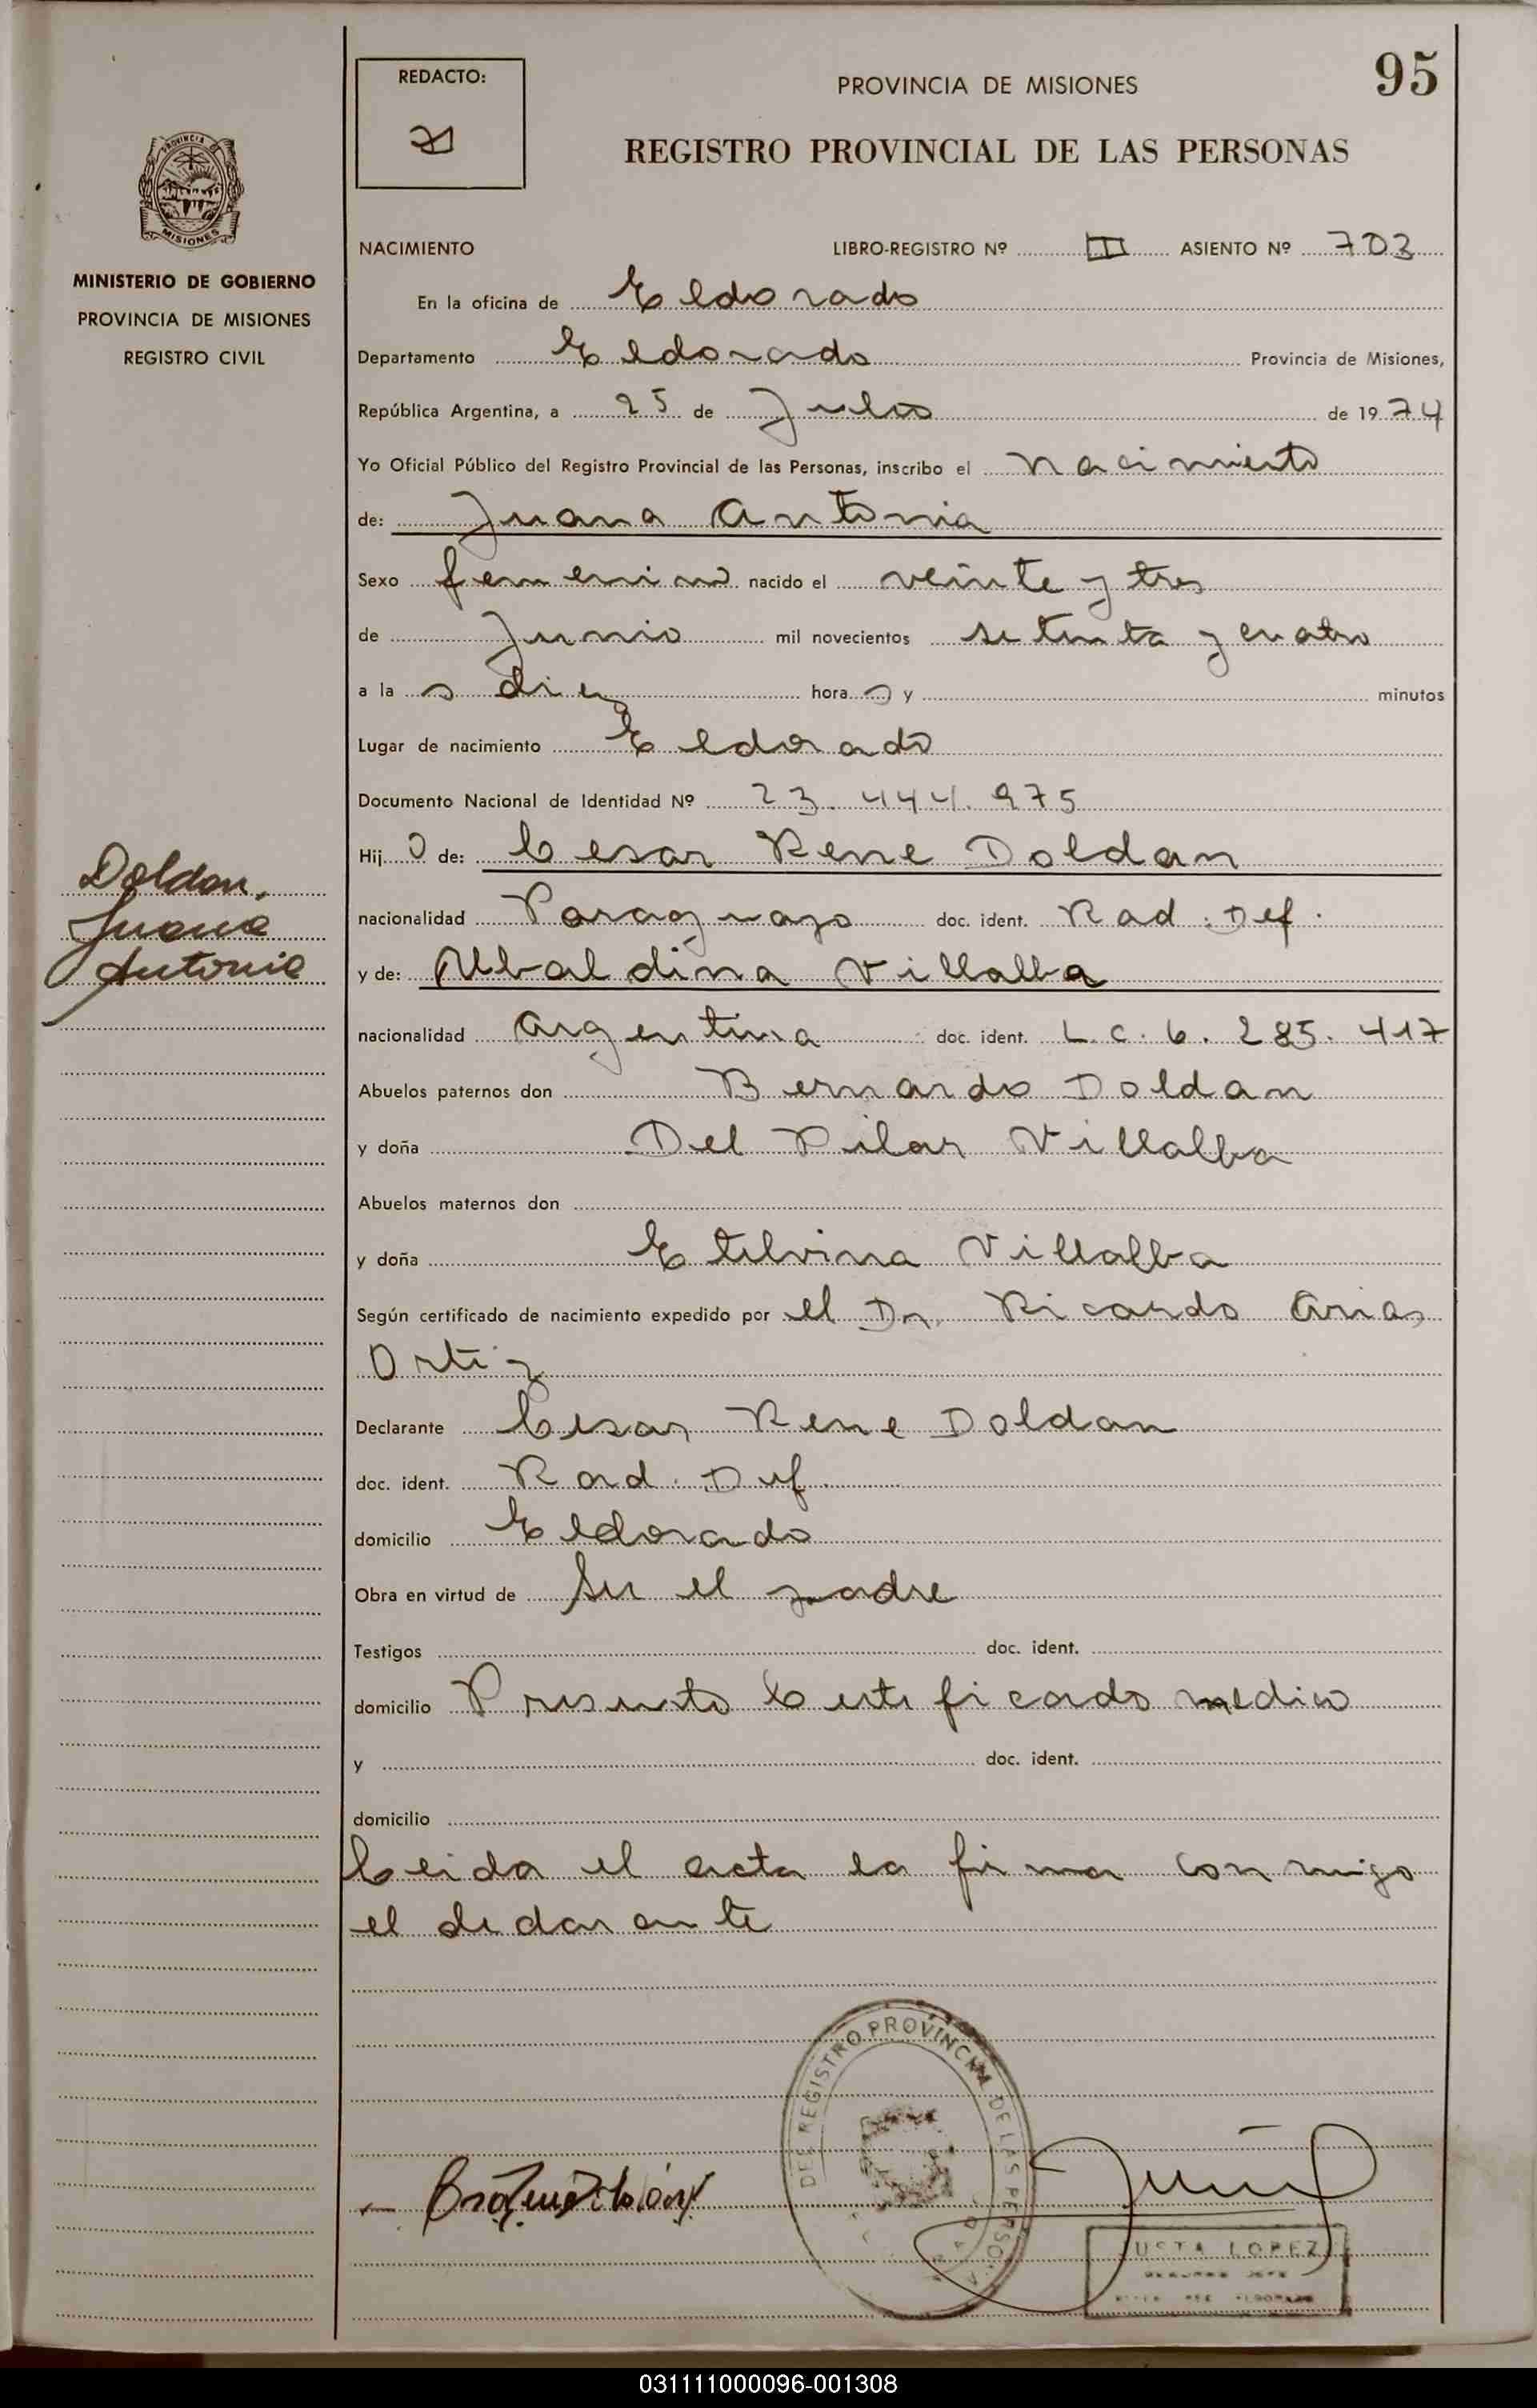 95
REDACTO:
PROVINCIA DE MISIONES
REGISTRO PROVINCIAL DE LAS PERSONAS
PROVINCIA DE
MISIONES
MINISTERIO DE GOBIERNO
PROVINCIA DE MISIONES
REGISTRO CIVIL
NACIMIENTO LIBRO-REGISTRO Nº III ASIENTO Nº 703
En la oficina de Eldorado
Departamento Eldorado Provincia de Misiones,
República Argentina, a 25 de Julio de 1974
Yo Oficial Público del Registro Provincial de las Personas, inscribo el nacimiento
de: Juana Antonia
Sexo femenino nacido el veinte y tres
de Junio mil novecientos setenta y cuatro
a las diez horas y minutos
Lugar de nacimiento Eldorado
Documento Nacional de Identidad Nº 23.444.975
Doldan,
Juana
Antonia
Hijo de: Cesar Rene Doldan
nacionalidad Paraguayo doc. ident. Rad. Def.
y de: Ubaldina Villalba
nacionalidad argentina doc. ident. L.C. 6.285.417
Abuelos paternos don Bernardo Doldan
y doña Del Pilar Villalba
Abuelos maternos don
y doña Etelvina Villalba
Según certificado de nacimiento expedido por el Dr. Ricardo Arias
Ortiz
Declarante Cesar Rene Doldan
doc. ident. Rad. Def.
domicilio Eldorado
Obra en virtud de Ser el padre
Testigos doc. ident.
domicilio Presento Certificado medico
y doc. ident.
domicilio
Leida el acta la firma conmigo
el declarante
DEL REGISTRO PROVINCIAL DE LAS PERSONAS
USTA LOPEZ
031111000096-001308